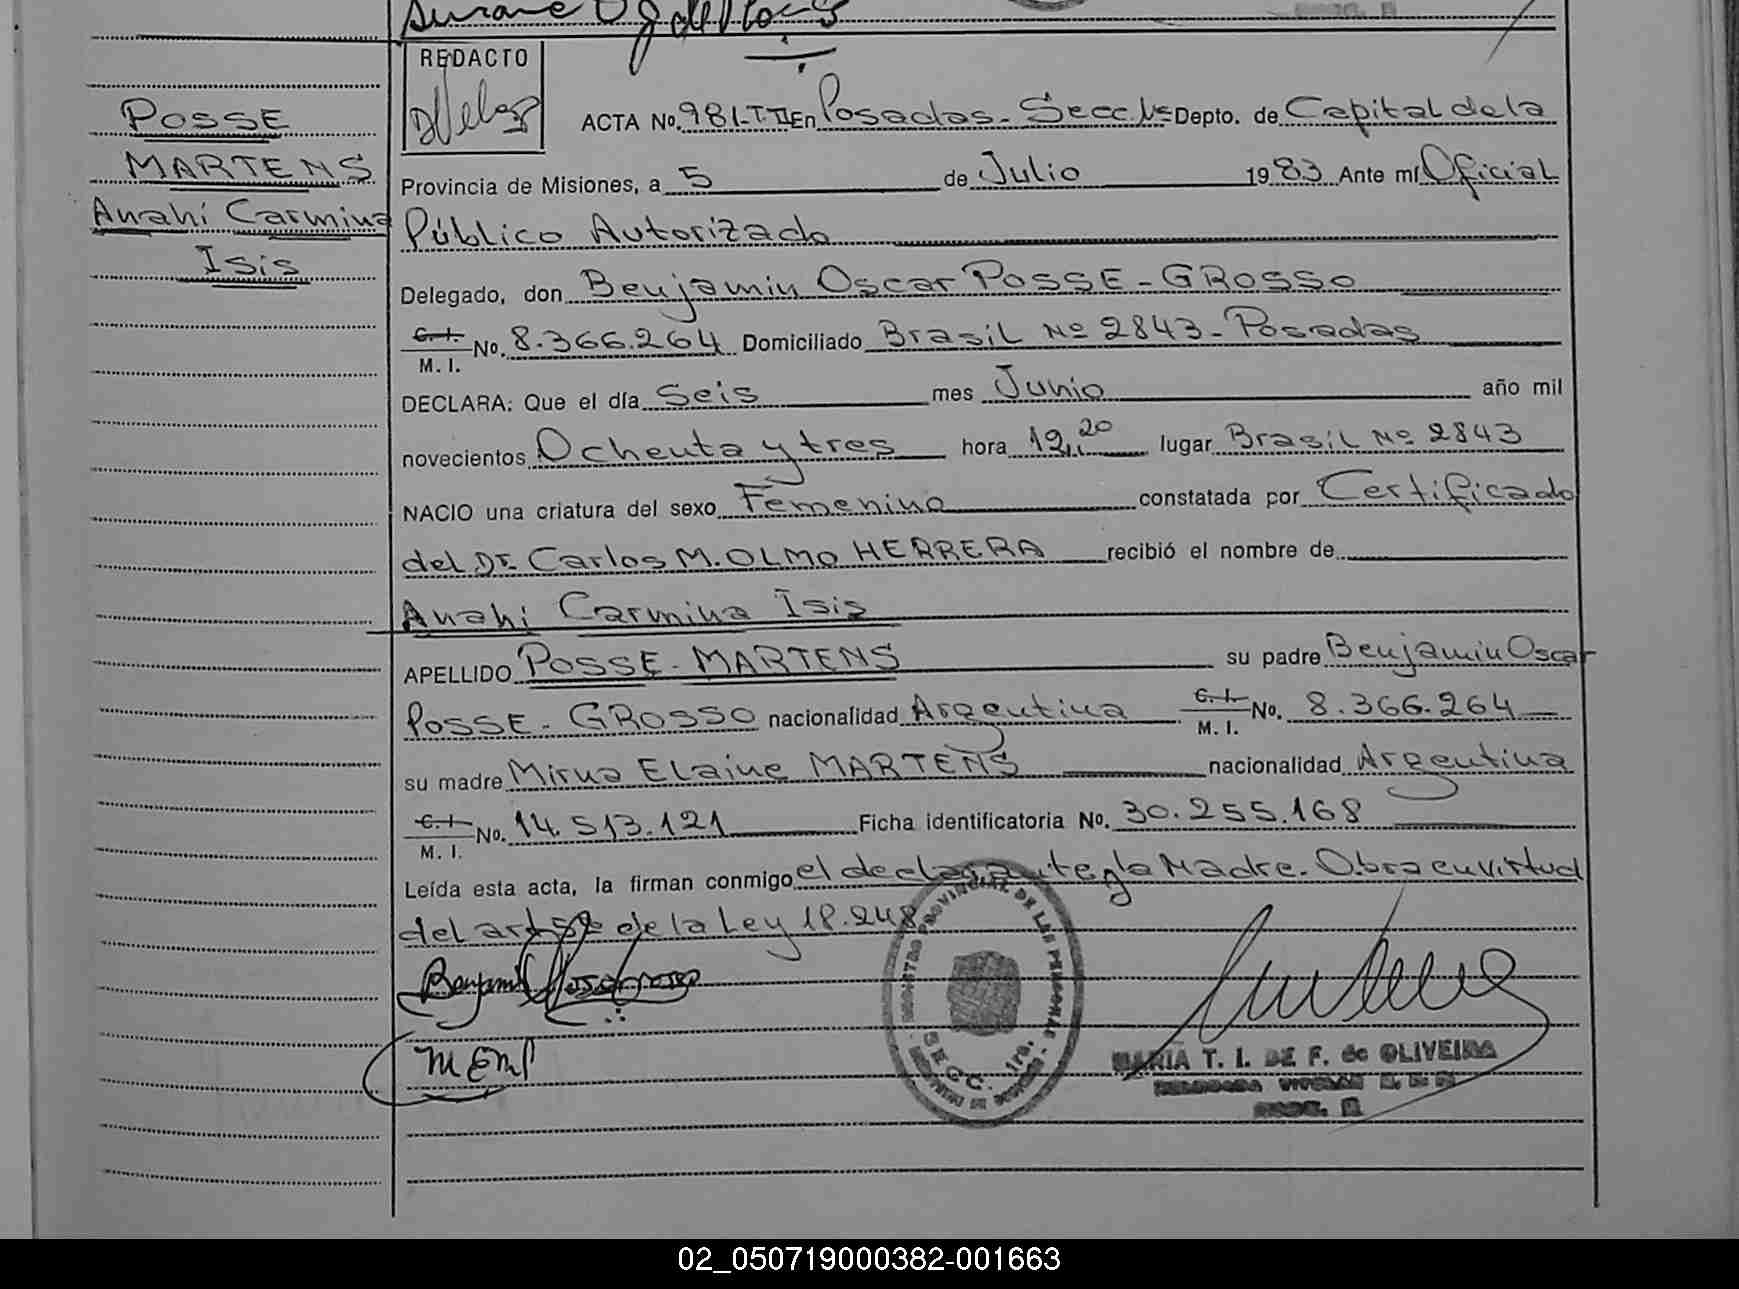 REDACTO
POSSE
MARTENS
Anahí Carmina
Isis
ACTA No. 981-T II En Posadas - Secc 1ª Depto. de Capital de la
Provincia de Misiones, a 5 de Julio 1983 Ante mí Oficial
Público Autorizado
Delegado, don Benjamin Oscar POSSE - GROSSO
C. I.
M. I. No. 8.366.264 Domiciliado Brasil Nº 2843 - Posadas
DECLARA: Que el día Seis mes Junio año mil
novecientos Ochenta y tres hora 12,20 lugar Brasil Nº 2843
NACIO una criatura del sexo Femenino constatada por Certificado
del Dr. Carlos M. OLMO HERRERA recibió el nombre de
Anahi Carmina Isis
APELLIDO POSSE - MARTENS su padre Benjamin Oscar
POSSE - GROSSO nacionalidad Argentina C. I. M. I. No. 8.366.264
su madre Mirna Elaine MARTENS nacionalidad Argentina
C. I.
M. I. No. 14.513.121 Ficha identificatoria No. 30.255.168
Leída esta acta, la firman conmigo el declarante y la Madre. Obra en virtud
del art 5º de la Ley 18.248
SECC. 1ra.
MARIA T. I. DE F. de OLIVEIRA
02_050719000382-001663